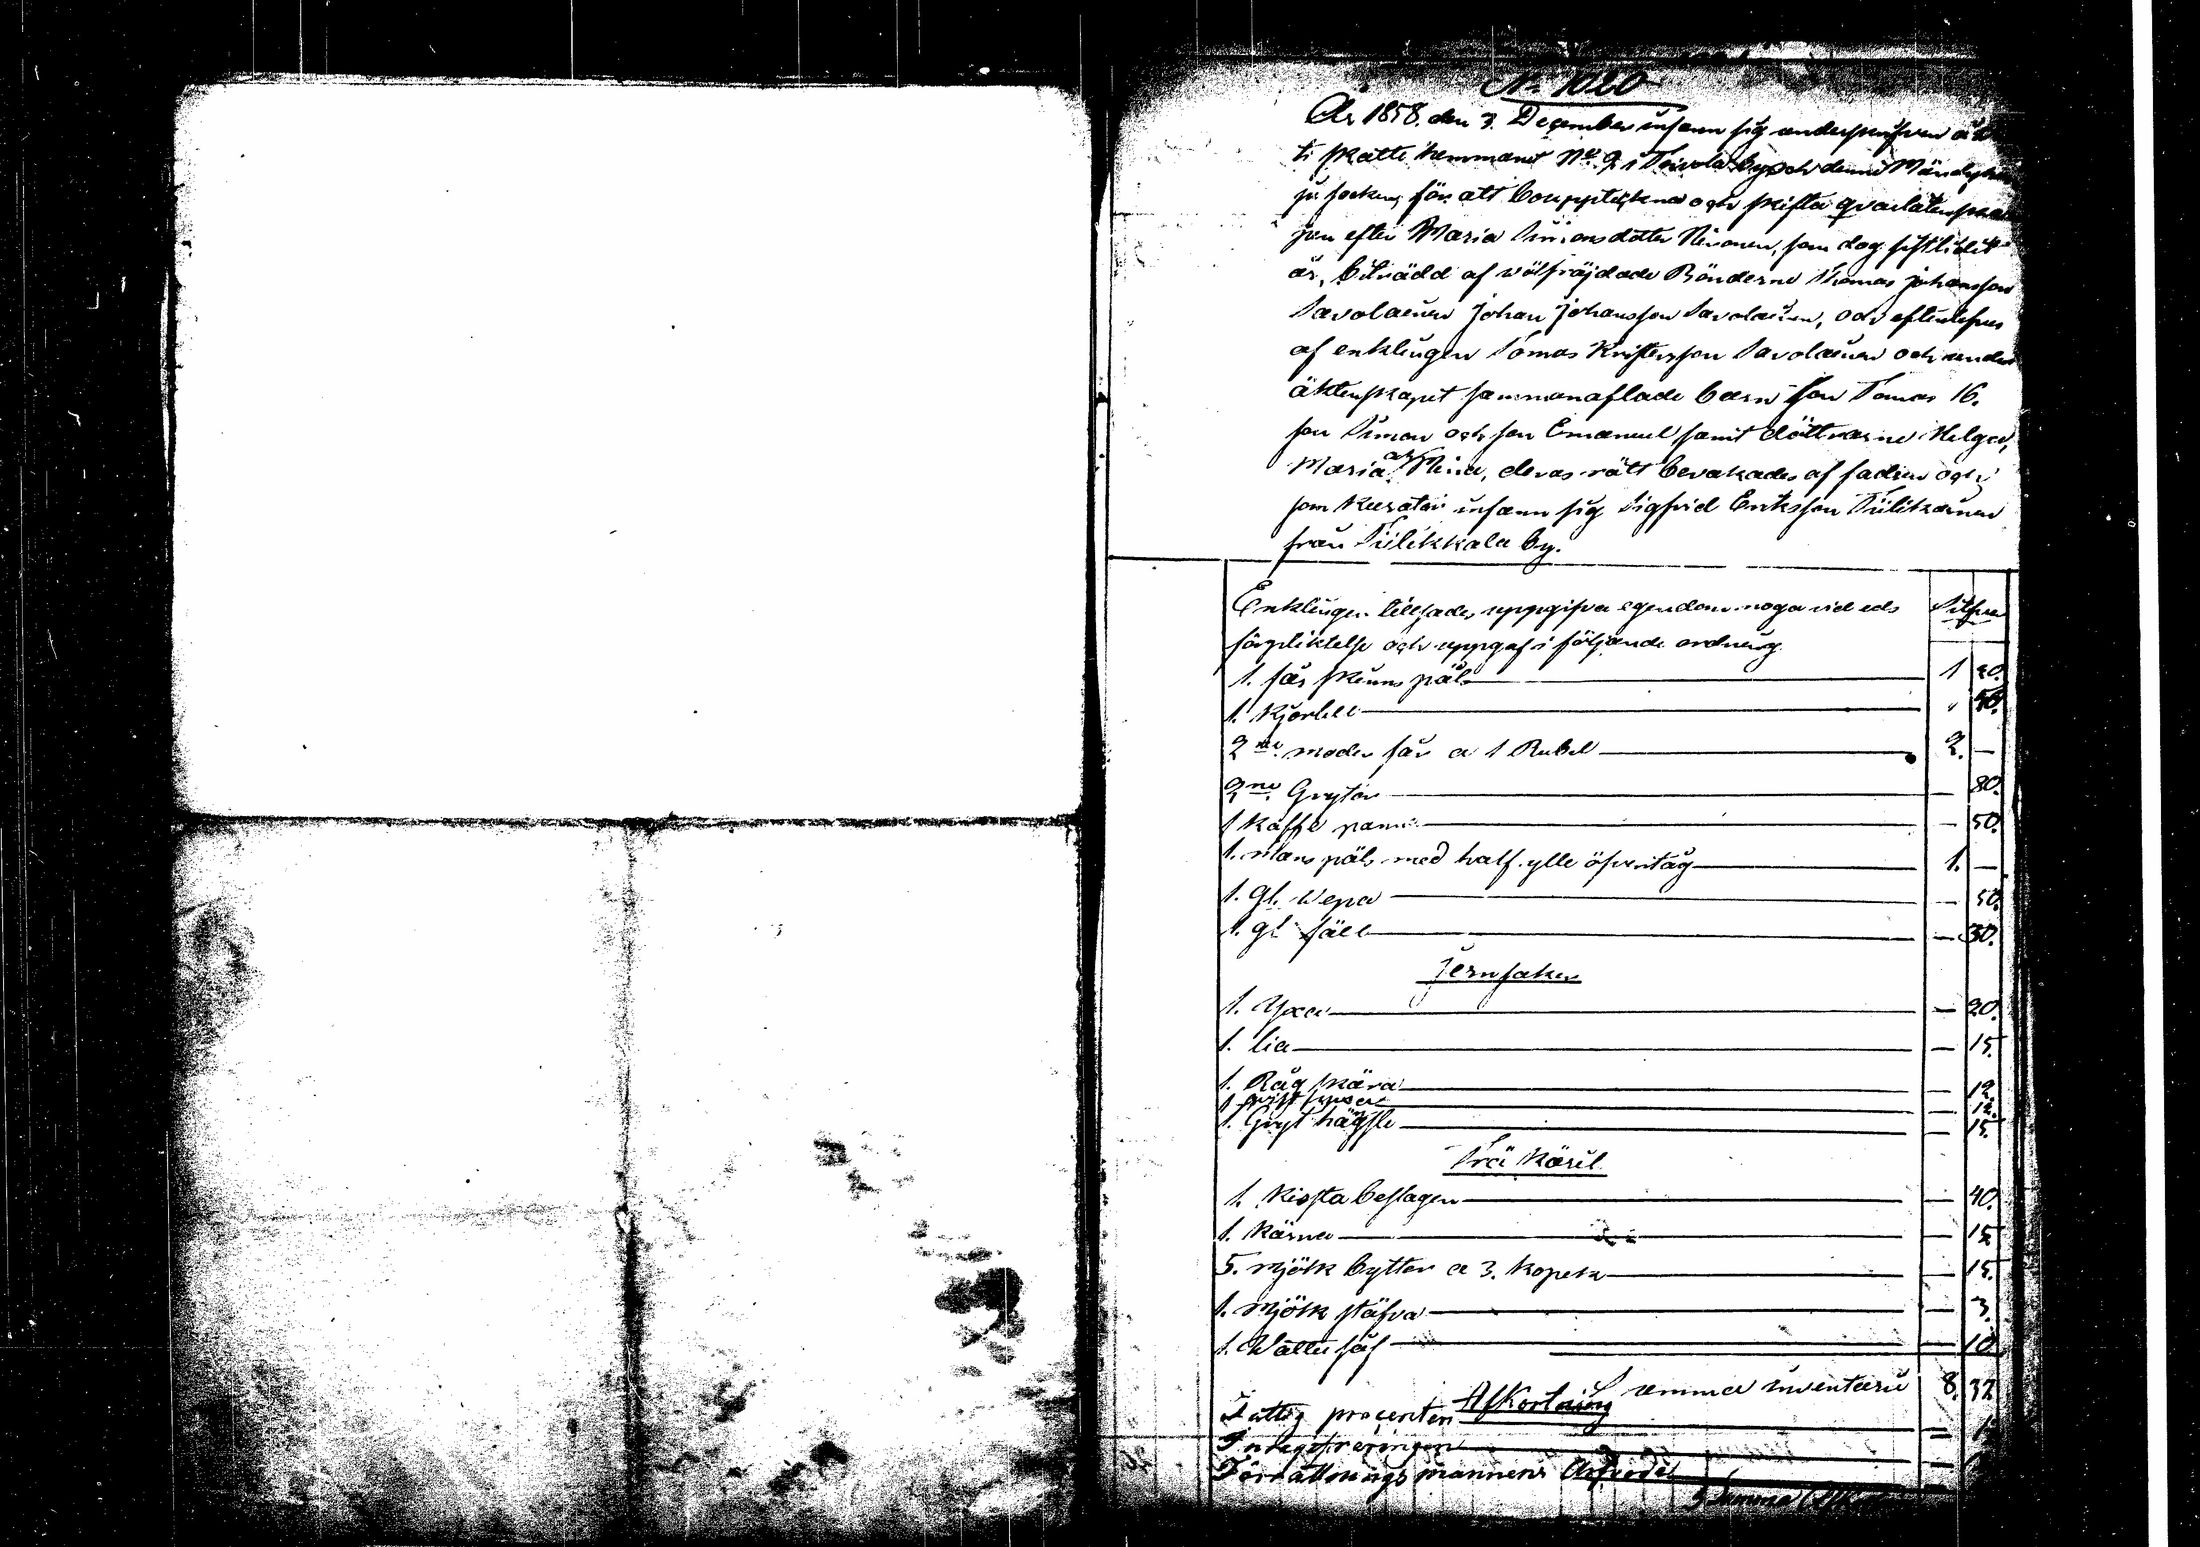 No 1020
År 1858. den 3. December infann sig underskrifven å
ti skatte hemmanet No 9 i Toivola by och denne Mändyha
ju socken, för att bouppteckna och skifta qvarlåtenska
pen efter Maria Simonsdotter Ninonen, som dog sistlidit
år, biträdd af välfräjdade Bönderne Thomas Johansson
Savolainen Johan Johansson Savolainen, och efterlefves
af enklingen Tomas Kristersson Savolainen och under
äktenskapet sammanaflade barn son Tomas 16.
son Simon och son Emanuel samt döttrarne Helga,
Maria och Stina, deras rätt bevakades af fadren och
som Kurator infann sig Sigfrid Eriksson Tiilikainen
från Tiilikkala by.
Enklingen tillsades uppgifva egendom noga vid eds Silfver
förpliktelse och uppgaf i följande ordning
1. får skinns päls 1 20.
1. Kjortell " 40.
2ne moder får a 1 Rubel 2. —
2ne Grytor — 80.
1 Kaffe panna — 50.
1. Mans päls med half ylle öfvertåg 1. —
1. gl. Wepa — 50.
1. gl fäll — 30.
Jernsaker
1. Yxa — 20.
1. lia — 15.
1. Råg skära — 12.
1 — 12.
1. Gryt hägsle — 15.
Trä Käril
1. Kissta beslagen — 40.
1. Kärna — 15
5. Mjölk byttor a 3. Kopek — 15.
1. Mjölk stäfva — 3.
1. Wattu så — 10
Summa inventarii 8. 37.
Afkortning
Fattig procenten — 1
Inregistreringen —
Förrättnings mannens Arfvode
Summa